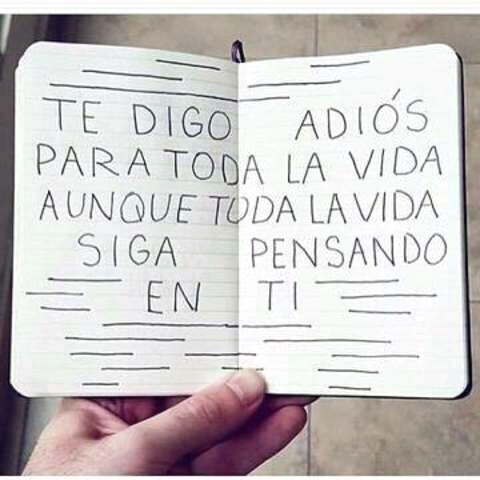 TE DIGO ADIÓS
PARA TODA LA VIDA
AUNQUE TODA LA VIDA
SIGA PENSANDO
EN TI